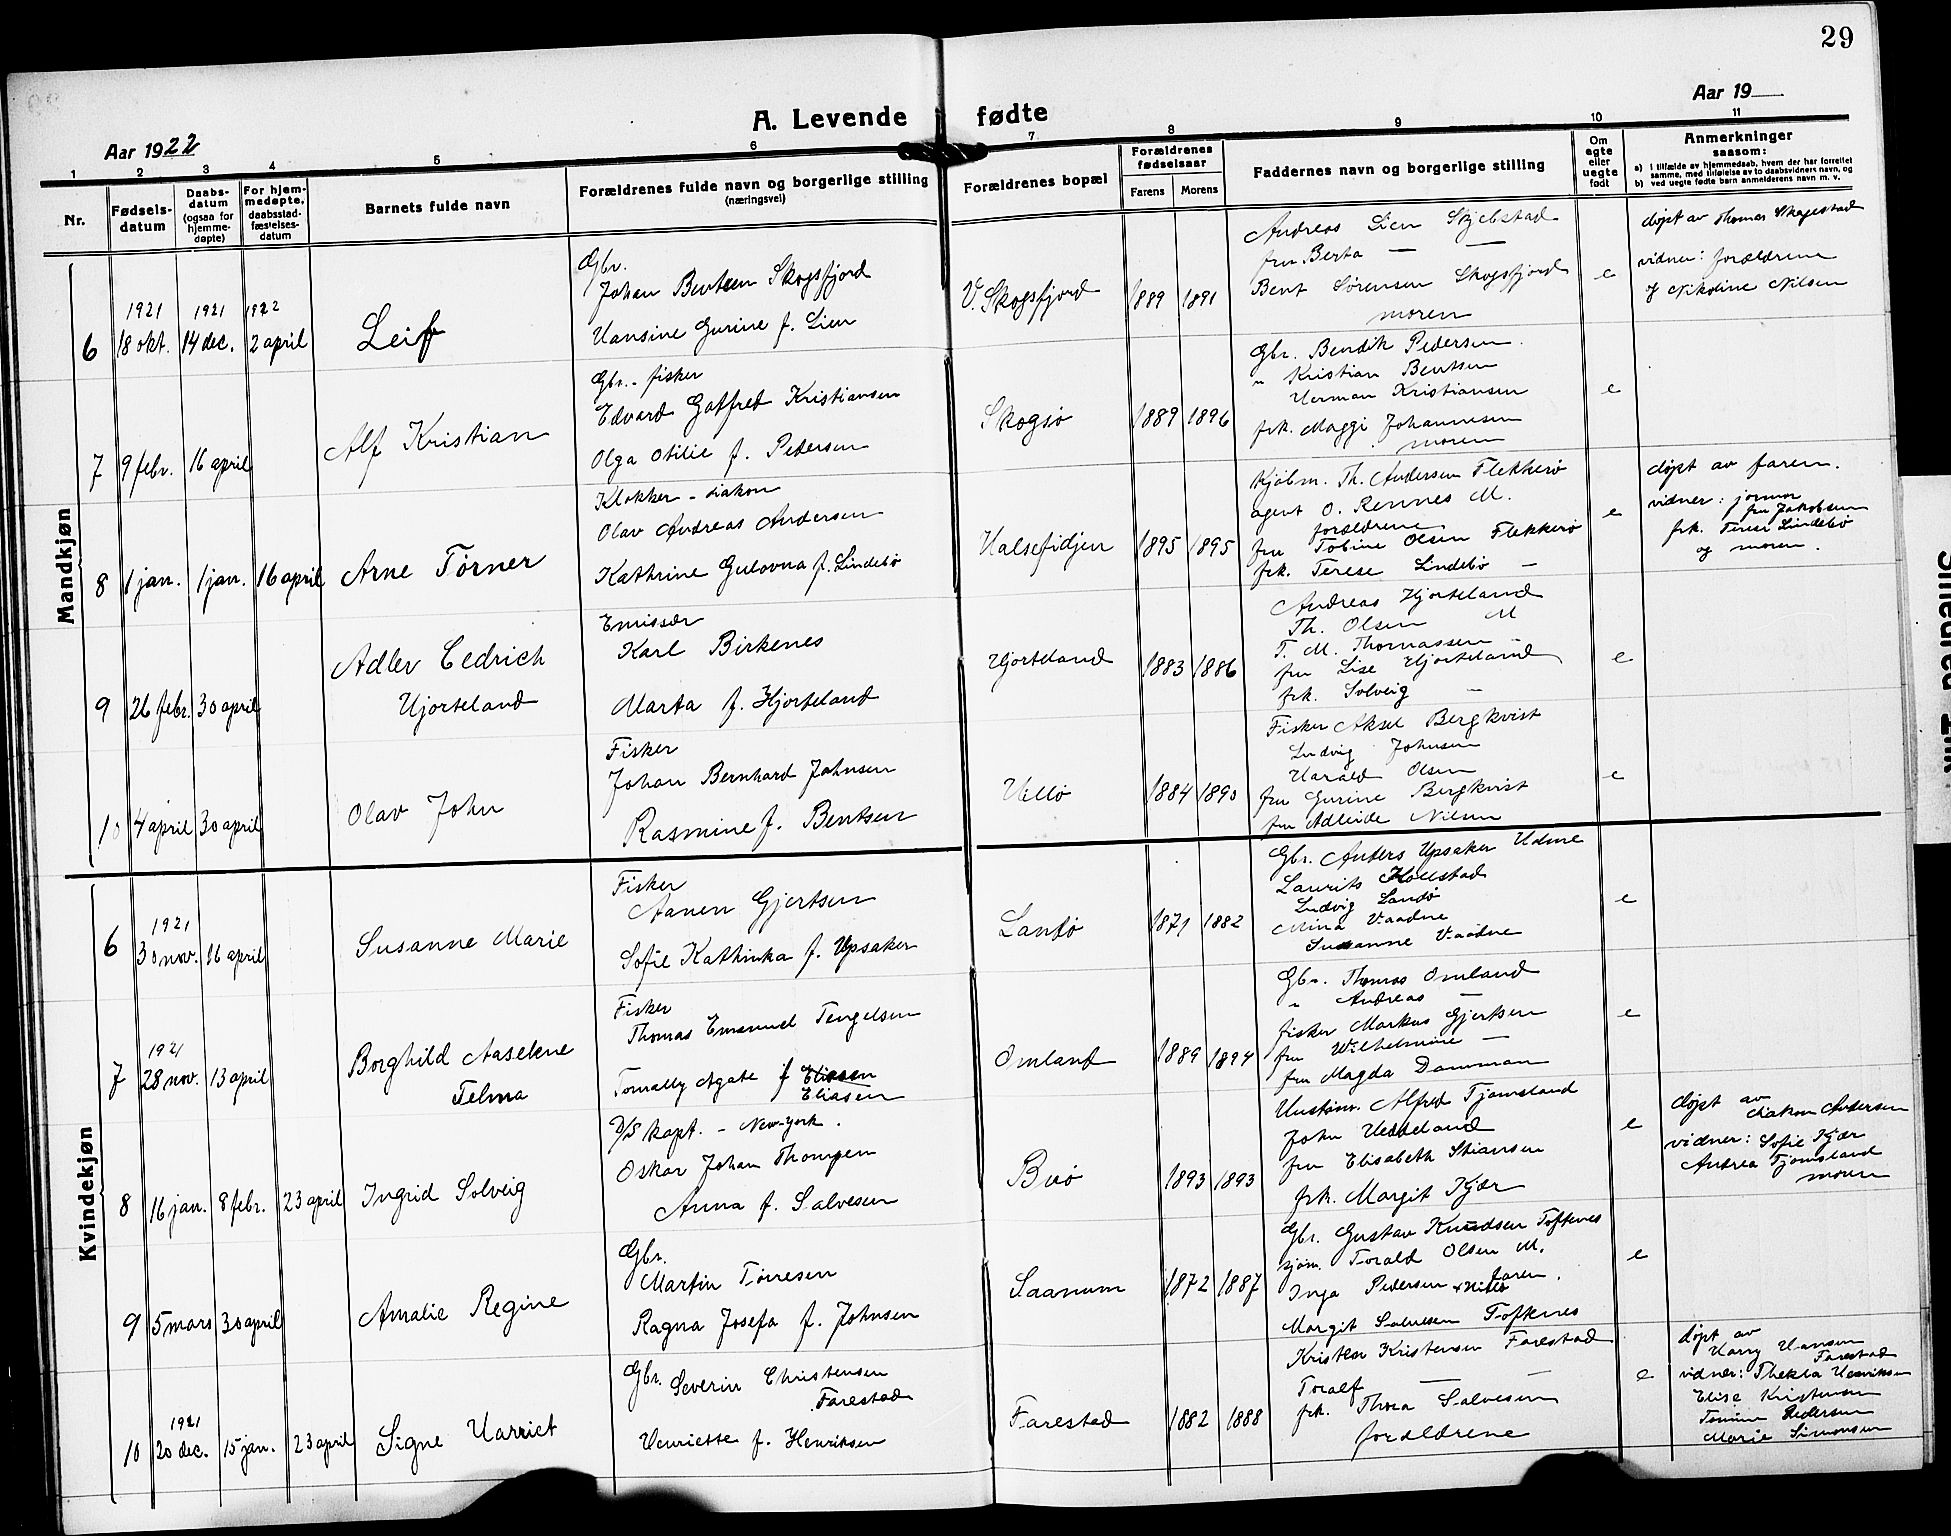 29
A. Levende fødte
Aar 1922
Aar 19
1 2 3 4 5 6 7 8 9 10 11
Nr.
Fødsels-datum
Daabs-datum (ogsaa for hjemme-døpte)
For hjem-medøpte, daabsstad-fæstelses-datum
Barnets fulde navn
Forældrenes fulde navn og borgerlige stilling
(næringsvei)
Forældrenes bopæl
Forældrenes fødselsaar
Farens Morens
Faddernes navn og borgerlige stilling
Om egte eller uegte født
Anmerkninger
saasom:
a) i tilfælde av hjemmedaab, hvem der har forrettet samme, med tilføielse av to daabsvidners navn, og
b) ved uegte fødte barn anmelderens navn m. v.
Mandkjøn
6
1921 18 okt.
1921 14 dec.
1922 2 april
Leif
Gbr.
Johan Bentsen Skogsfjord
Hansine Gurine f. Lien
V. Skogsfjord
1889 1891
Andreas Lien Skjebstad
fru Berta — —
Bent Sørensen Skogsfjord
moren
e
døpt av Thomas Skagestad
vidner: forældrene
og Nikoline Nilsen
7
9 febr.
16 april
Alf Kristian
Gbr. - fisker
Edvard Gotfred Kristiansen
Olga Otilie f. Pedersen
Skogsø
1889 1896
Gbr. Bendik Pedersen
" Kristian Bentsen
Herman Kristiansen
frk. Maggi Johannesen
moren
e
8
1 jan.
1 jan.
16 april
Arne Tørner
Klokker - diakon
Olav Andreas Andersen
Kathrine Gulovna f. Lindebø
Halsefidjen
1895 1895
Kjøbm. Th. Andersen Flekkerø
agent O. Rennes M.
forældrene
fru Tobine Olsen Flekkerø
frk. Terese Lindebø —
e
døpt av faren.
vidner: jormor
fru Jakobsen
frk. Terese Lindebø
og moren.
9
26 febr.
30 april
Adler Cedrich
Hjorteland
Emissær
Karl Birkenes
Marta f. Hjorteland
Hjorteland
1883 1886
Andreas Hjorteland
Th. Olsen M
T. M. Thomassen —
fru Lise Hjorteland
frk. Solveig —
e
10
4 april
30 april
Olav John
Fisker
Johan Bernhard Johnsen
Rasmine f. Bentsen
Hellø
1884 1890
Fisker Aksel Bergkvist
Ludvig Johnsen
Harald Olsen
fru Gurine Bergkvist
fru Adleide Nilsen
e
Kvindekjøn
6
1921 30 nov.
16 april
Susanne Marie
Fisker
Aanen Gjertsen
Sofie Kathinka f. Upsaker
Landø
1871 1882
Gbr. Anders Upsaker Udne
Laurits Hollestad
Ludvig Landø
Mina Vaadne
Susanne Vaadne
e
7
1921 28 nov.
13 april
Borghild Aaselene
Telma
Fisker
Thomas Emanuel Tengelsen
Tomally Agate f Eliasen
Eliasen
Omland
1889 1894
Gbr. Thomas Omland
" Andreas —
fisker Markus Gjertsen
fru Wilhelmine —
fru Magda Damman
e
8
16 jan.
8 febr.
23 april
Ingrid Solveig
D/S kapt. - New-York.
Oskar Johan Thompsen
Anna f. Salvesen
Buø
1893 1893
Alfred Tjomsland
John
fru Elisabeth Stiansen
frk. Margit Kjær
e
døpt av
diakon Andersen
vidner: Sofie Kjær
Andrea Tjomsland
moren
9
5 mars
30 april
Amalie Regine
Gbr.
Martin Tørresen
Ragna Josefa f. Johnsen
Saanum
1872 1887
Gbr. Gustav Knudsen Toftenes
sjøm. Torald Olsen M.
Inga Pedersen faren.
Margit Salvesen Toftenes
e
10
1921 20 dec.
15 jan.
23 april
Signe Harriet
Gbr. Severin Christensen
Farestad
Henriette f. Henriksen
Farestad
1882 1888
Kristen Kristensen Farestad
Toralf — —
frk. Thora Salvesen
forældrene
e
døpt av
Harry Hansen
Farestad
vidner: Thekla Henriksen
Elise Kristensen
Tomine Pedersen
Marie Simonsen